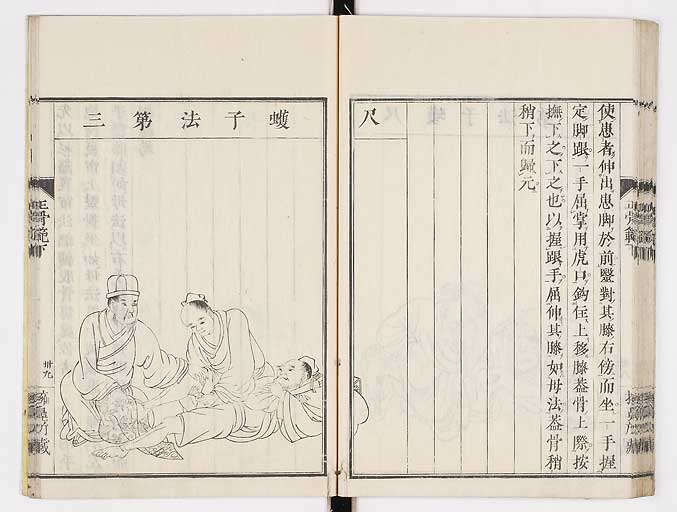 使患者伸出患脚於前毉對其膝右傍而坐一手握
定脚跟一手屈掌用虎口鈎住上移膝葢骨上際按
撫下之下之也以握跟手屈伸其膝如母法葢骨稍
稍下而歸元
尺
蠖子法第三
正骨範下
卅九